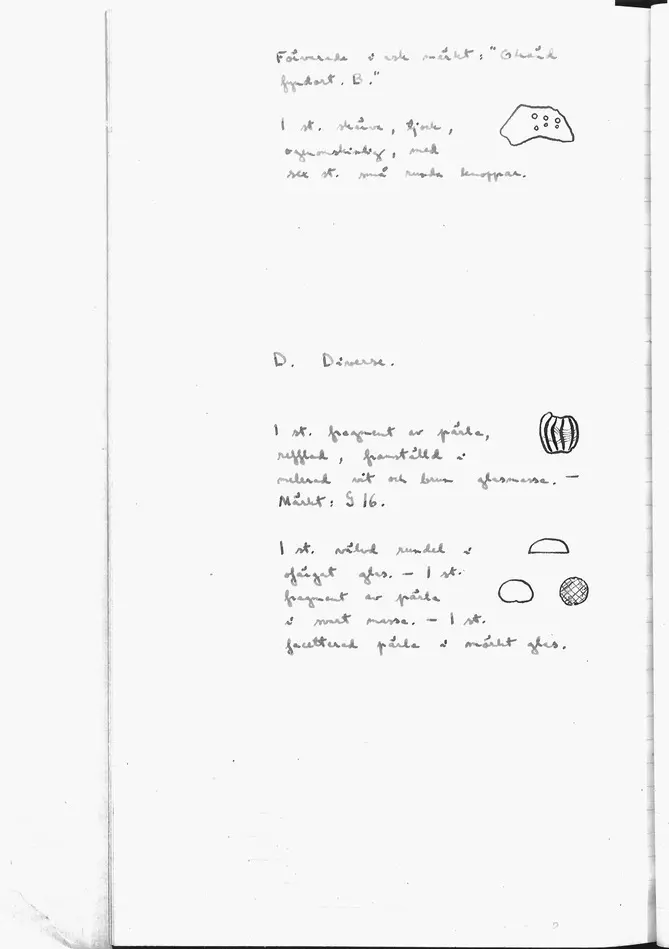 Förvarade i ask märkt: "Okänd
fyndort. B."
1 st. skärva, tjock,
ogenomskinlig, med
sex st. små runda knoppar.
D. Diverse.
1 st. fragment av pärla,
refflad, framställd i
melerad vit och brun glasmassa. —
Märkt: S 16.
1 st. välvd rundel i
ofärgat glas. — 1 st.
fragment av pärla
i svart massa. — 1 st.
facetterad pärla i mörkt glas.